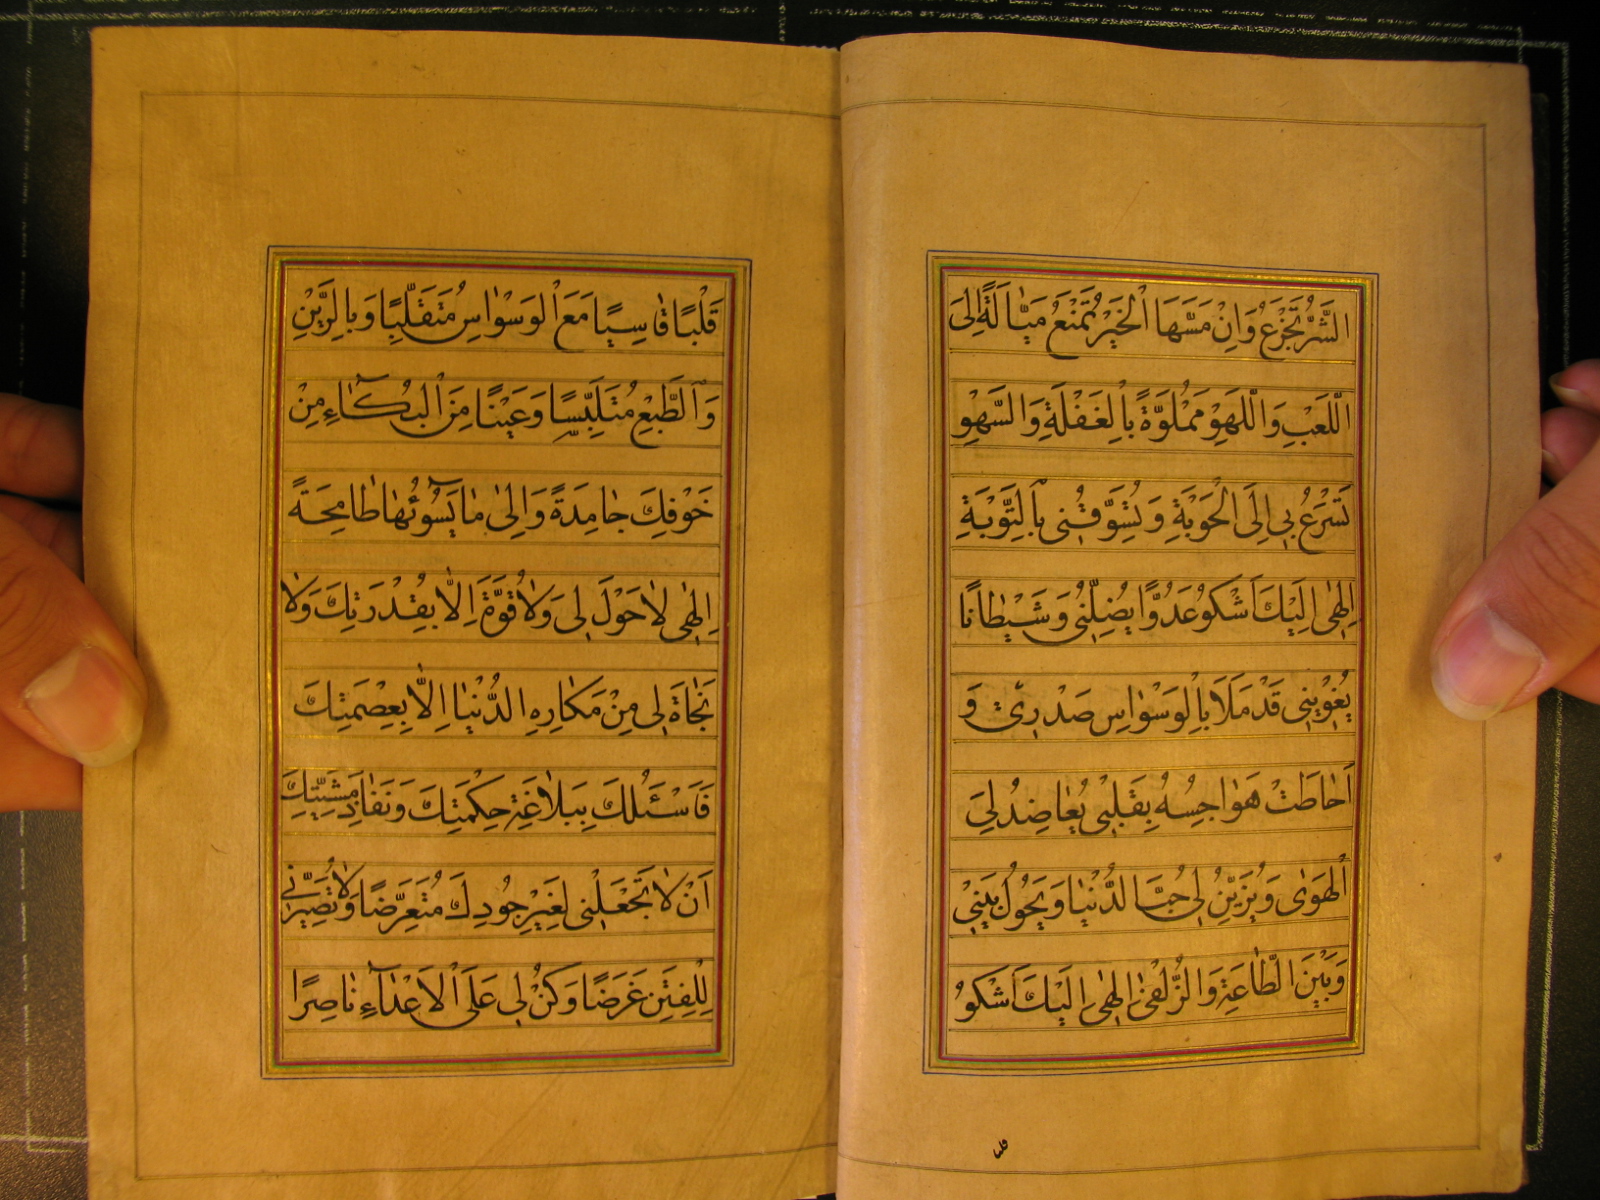 الشَّرُّ تَجْزَعُ وَاِنْ مَسَّهَا الْخَيْرُ تَمْنَعُ مَيّٰالَةً اِلَى
اللَّعْبِ وَاللَّهْوِ مَمْلُوَّةً بِالْغَفْلَةِ وَالسَّهْوِ
تَسْرَعُ بِى اِلَى الْحَوْبَةِ وَتُسَوِّفُنِى بِالتَّوْبَةِ
اِلٰهِى اِلَيْكَ اَشْكُو عَدُوًّا يُضِلُّنِى وَشَيْطٰانًا
يُغْوِيْنِى قَدْ مَلَاَ بِالْوَسْوٰاسِ صَدْرِىْ وَ
اَحٰاطَتْ هَوٰاجِسُهُ بِقَلْبِىْ يُعٰاضِدُ لِىَ
الْهَوٰى وَيُزَيِّنُ لِى حُبَّ الدُّنْيٰا وَيَحُوْلُ بَيْنِىْ
وَبَيْنَ الطّٰاعَةِ وَالزُّلْفٰى اِلٰهِى اِلَيْكَ اَشْكُوُ
قلبا
قَلْبًا قٰاسِيًا مَعَ الْوَسْوٰاسِ مُتَقَلِّبًا وَبِالرَّيْنِ
وَالطَّبْعِ مُتَلَبِّسًا وَعَيْنًا مِنَ الْبُكٰاءِ مِنْ
خَوْفِكَ جٰامِدَةً وَاِلٰى مٰا يَسُوْئُهٰا طٰامِحَةً
اِلٰهِى لٰا حَوْلَ لِى وَلٰا قُوَّةَ اِلّٰا بِقُدْرَتِكَ وَلٰا
نَجٰاةَ لِى مِنْ مَكٰارِهِ الدُّنْيٰا اِلّٰا بِعِصْمَتِكَ
فَاَسْئَلُكَ بِبَلاٰغَةِ حِكْمَتِكَ وَنَفٰاذِ مَشِيَّتِكَ
اَنْ لاٰ تَجْعَلْنِى لِغَيْرِ جُودِكَ مُتَعَرِّضًا وَلاٰ تُصَيِّرَنِّى
لِلْفِتَنِ غَرَضًا وَكُنْ لِى عَلَى الْاَعْدٰاءِ نٰاصِرًا